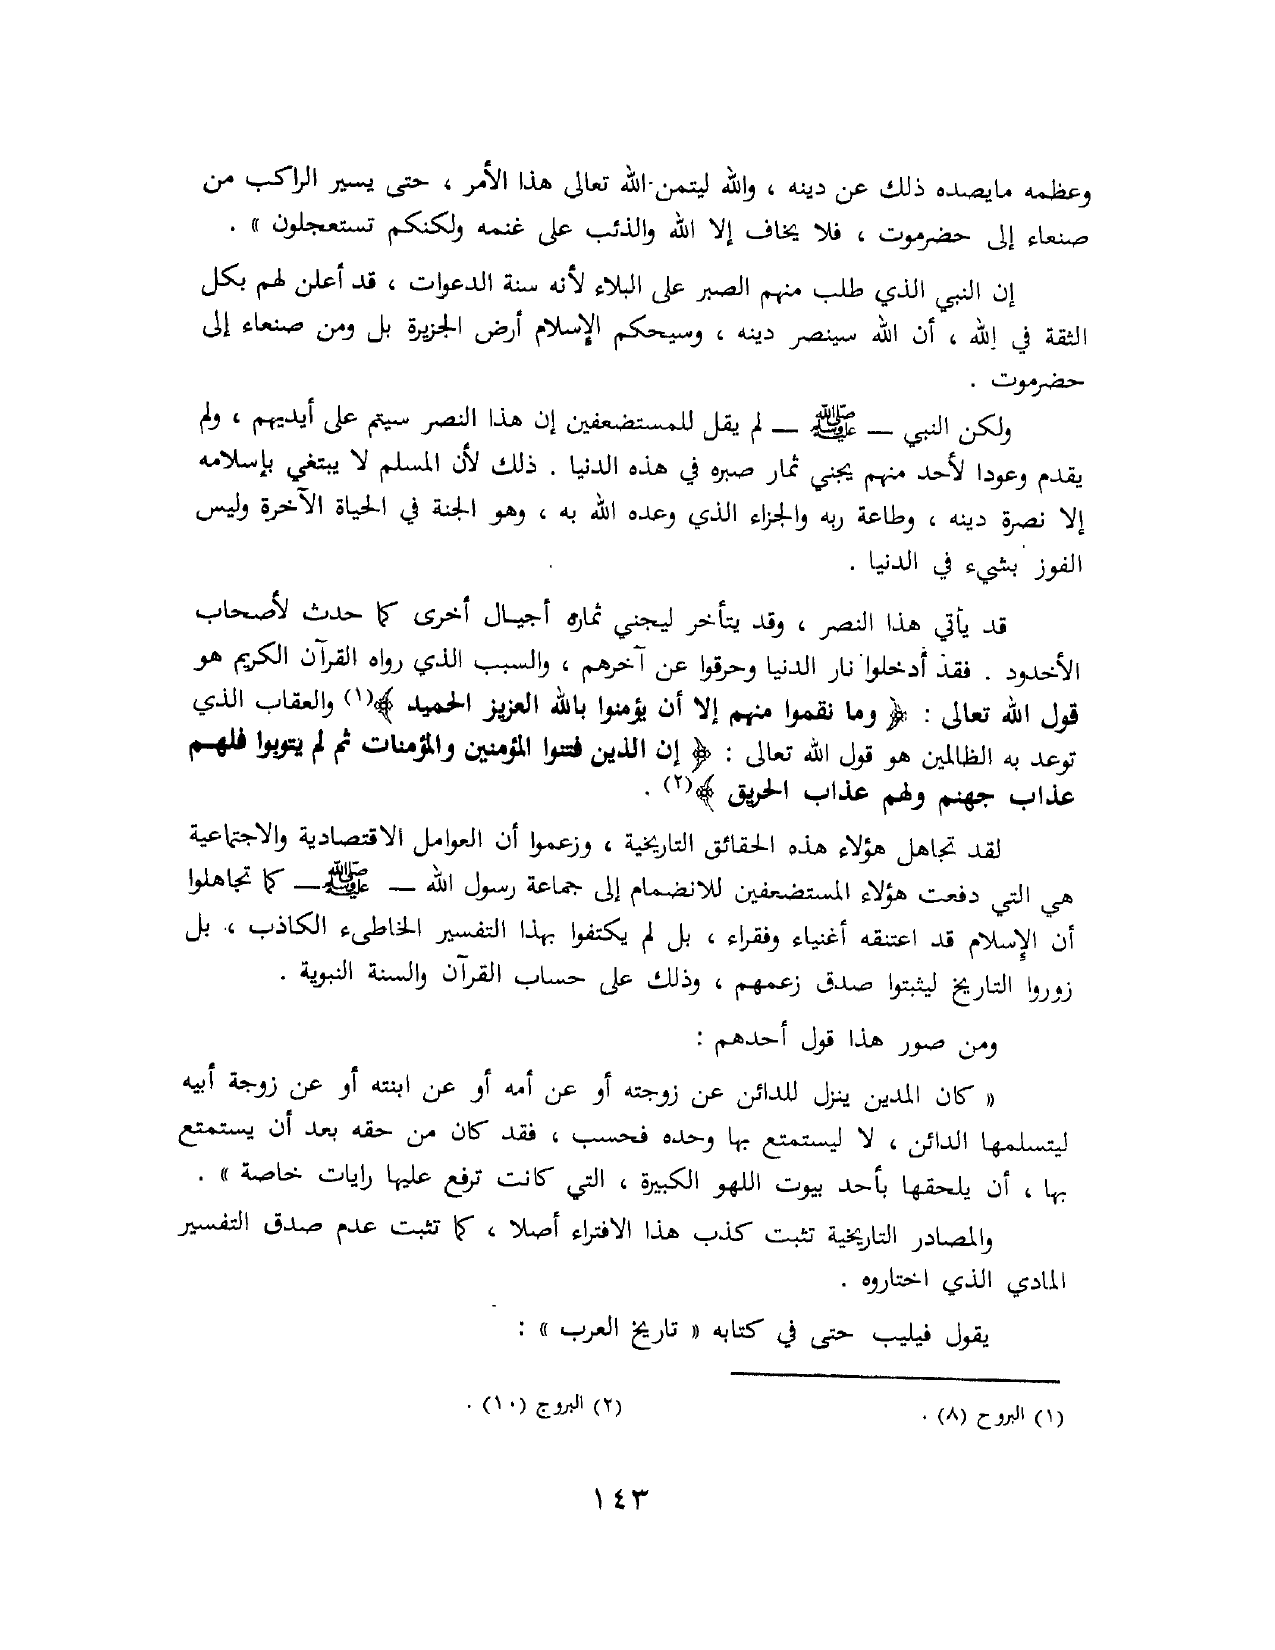 وعظمه مايصده ذلك عن دينه ، والله ليتمن الله تعالى هذا الأمر ، حتى يسير الراكب من
صنعاء إلى حضرموت ، فلا يخاف إلا الله والذئب على غنمه ولكنكم تستعجلون » .
إن النبي الذي طلب منهم الصبر على البلاء لأنه سنة الدعوات ، قد أعلن لهم بكل
الثقة في الله ، أن الله سينصر دينه ، وسيحكم الإسلام أرض الجزيرة بل ومن صنعاء إلى
حضرموت .
ولكن النبي — ﷺ — لم يقل للمستضعفين إن هذا النصر سيتم على أيديهم ، ولم
يقدم وعودا لأحد منهم يجني ثمار صبره في هذه الدنيا . ذلك لأن المسلم لا يبتغي بإسلامه
إلا نصرة دينه ، وطاعة ربه والجزاء الذي وعده الله به ، وهو الجنة في الحياة الآخرة وليس
الفوز بشيء في الدنيا .
قد يأتي هذا النصر ، وقد يتأخر ليجني ثماره أجيال أخرى كما حدث لأصحاب
الأخدود . فقد أدخلوا نار الدنيا وحرقوا عن آخرهم ، والسبب الذي رواه القرآن الكريم هو
قول الله تعالى : ﴿ وما نقموا منهم إلا أن يؤمنوا بالله العزيز الحميد ﴾(١) والعقاب الذي
توعد به الظالمين هو قول الله تعالى : ﴿ إن الذين فتنوا المؤمنين والمؤمنات ثم لم يتوبوا فلهم
عذاب جهنم ولهم عذاب الحريق ﴾(٢) .
لقد تجاهل هؤلاء هذه الحقائق التاريخية ، وزعموا أن العوامل الاقتصادية والاجتماعية
هي التي دفعت هؤلاء المستضعفين للانضمام إلى جماعة رسول الله — ﷺ — كما تجاهلوا
أن الإسلام قد اعتنقه أغنياء وفقراء ، بل لم يكتفوا بهذا التفسير الخاطىء الكاذب ، بل
زوروا التاريخ ليثبتوا صدق زعمهم ، وذلك على حساب القرآن والسنة النبوية .
ومن صور هذا قول أحدهم :
« كان المدين ينزل للدائن عن زوجته أو عن أمه أو عن ابنته أو عن زوجة أبيه
ليتسلمها الدائن ، لا ليستمتع بها وحده فحسب ، فقد كان من حقه بعد أن يستمتع
بها ، أن يلحقها بأحد بيوت اللهو الكبيرة ، التي كانت ترفع عليها رايات خاصة » .
والمصادر التاريخية تثبت كذب هذا الافتراء أصلا ، كما تثبت عدم صدق التفسير
المادي الذي اختاروه .
يقول فيليب حتى في كتابه « تاريخ العرب » :
(١) البروج (٨) .
(٢) البروج (١٠) .
١٤٣